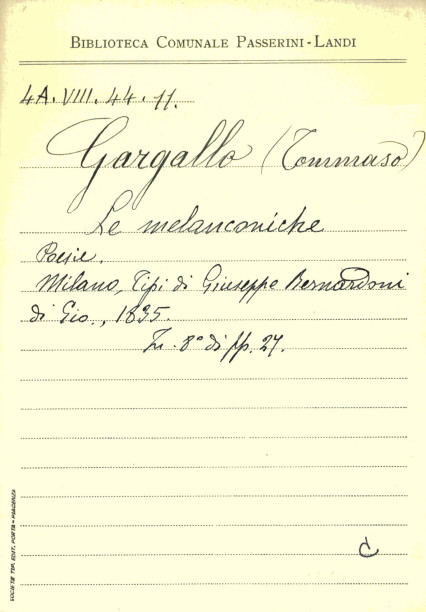 BIBLIOTECA COMUNALE PASSERINI-LANDI
4A.VIII.44.11.
Gargallo (Tommaso)
Le melanconiche
Poesie.
Milano, Tipi di Giuseppe Bernardoni
di Gio., 1835.
In-8° di pp. 27.
C
SOCIETÀ TIP. EDIT. PORTA - PIACENZA